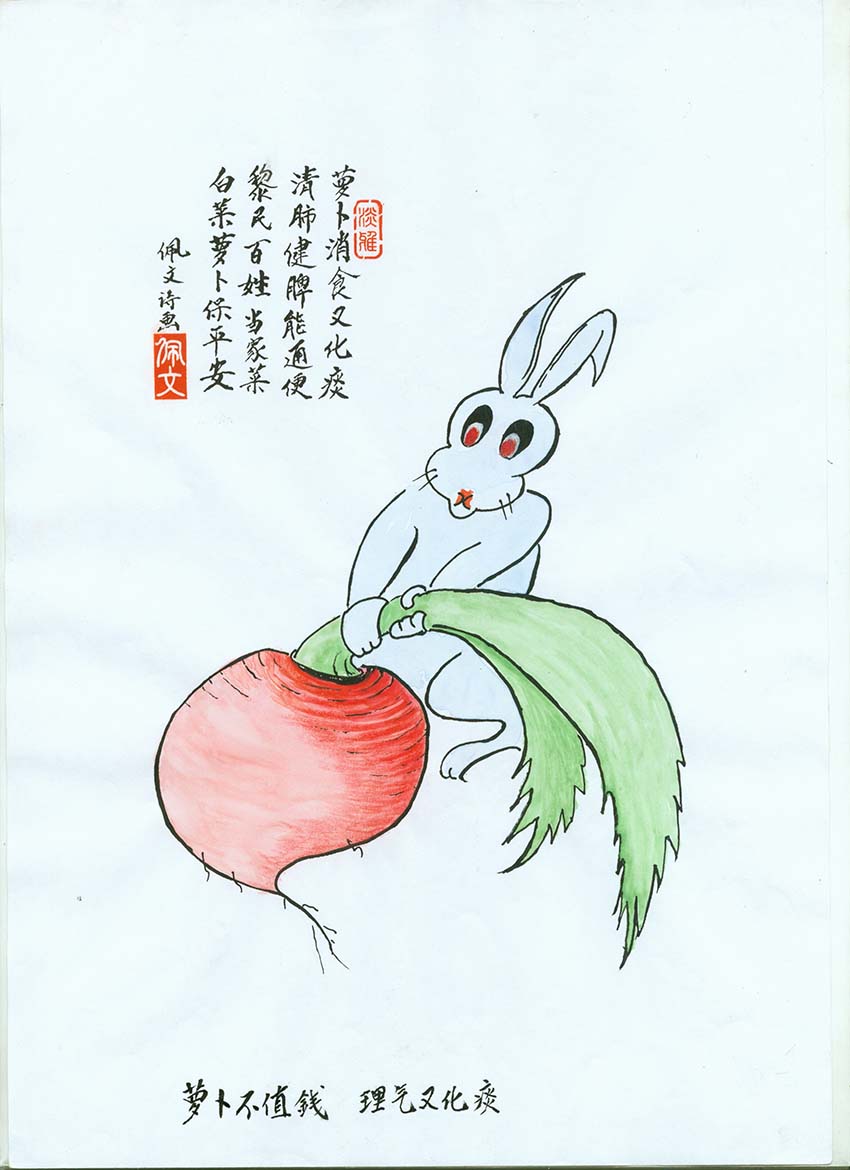 萝卜消食又化痰
清肺健脾能通便
黎民百姓当家菜
白菜萝卜保平安
佩文诗画
佩文
淡雅
萝卜不值钱 理气又化痰